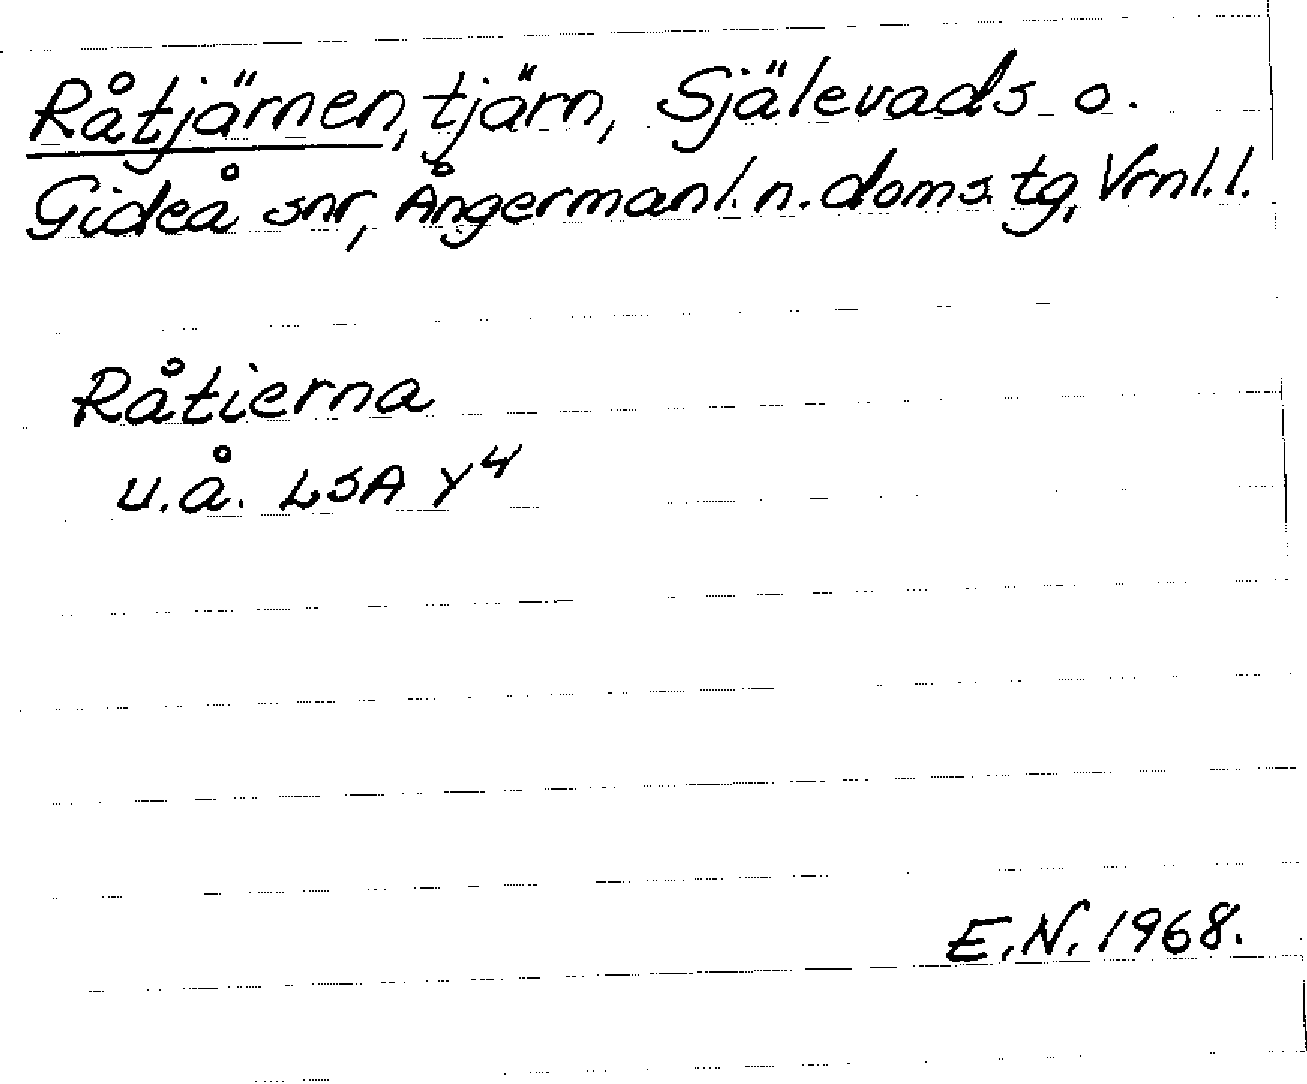 Råtjärnen, tjärn, Själevads o.
Gideå snr, Ångermanl. n. doms. tg, Vrnl. l.
Råtierna
u.å. LSA Y4
E.N. 1968.